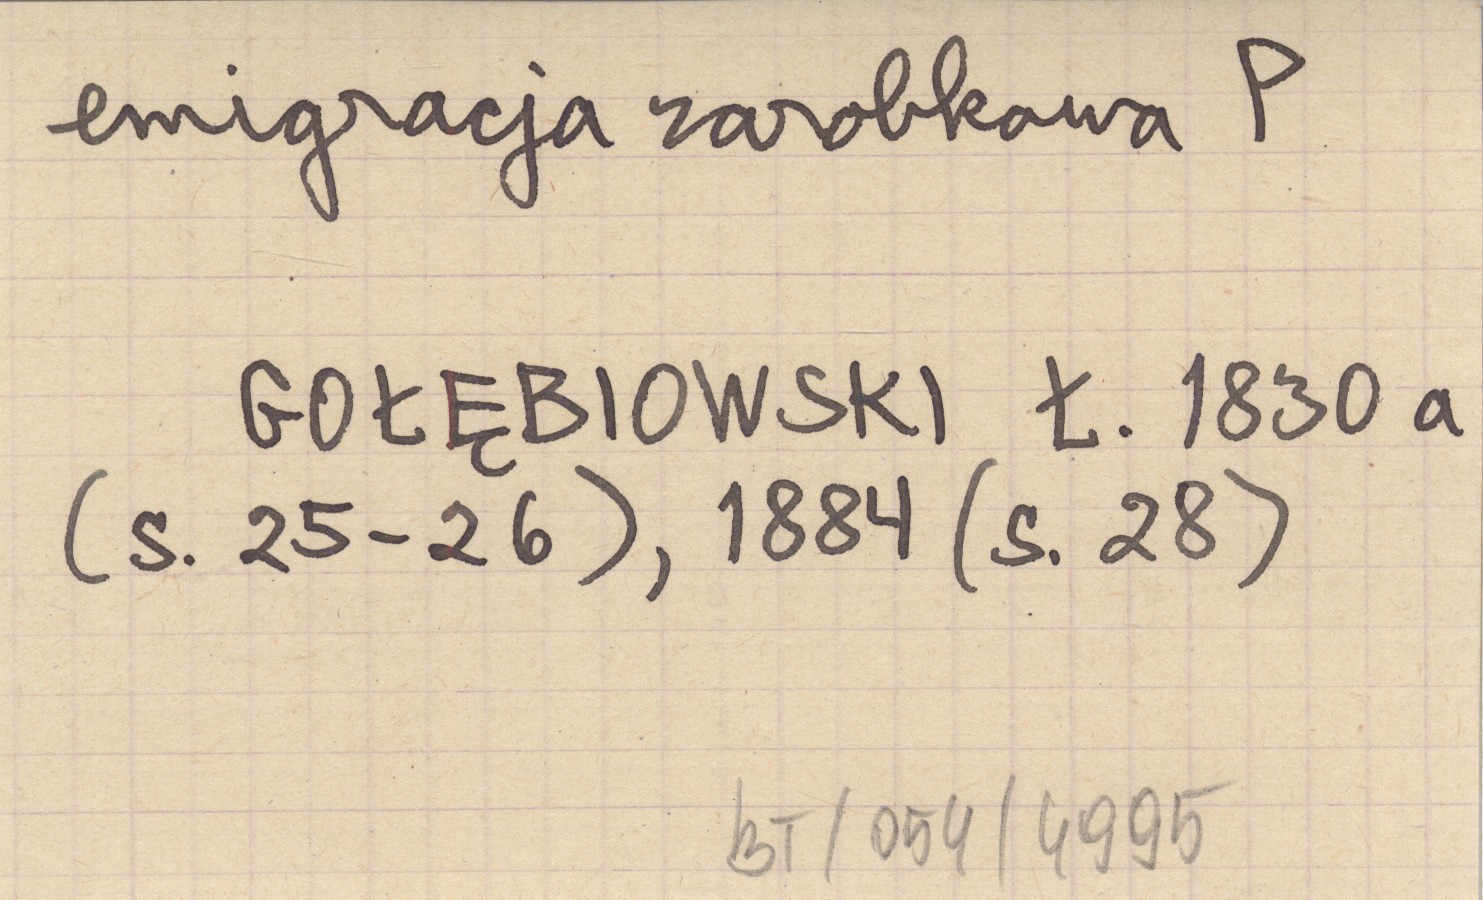 emigracja zarobkowa P
GOŁĘBIOWSKI Ł. 1830 a
(s. 25-26), 1884 (s. 28)
BT/054/4995